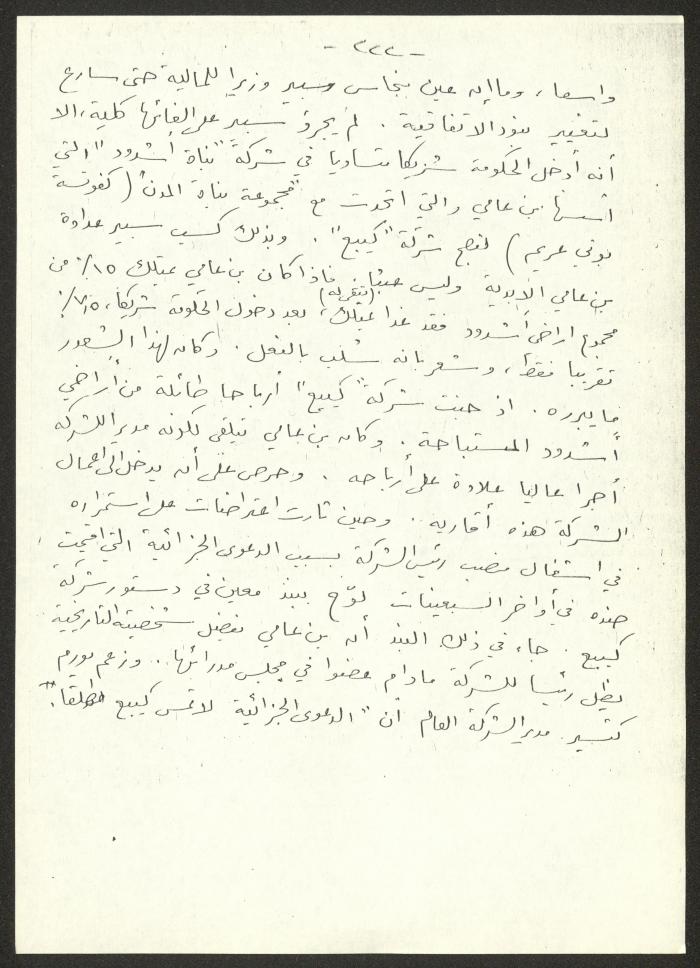 - ٢٢٢ -
واسعا، وما إن عين بنحاس سبير وزيرا للمالية حتى سارع
لتغيير بنود الاتفاقية. لم يجرؤ سبير على الغائها كلية، الا
أنه أدخل الحكومة شريكا متساويا في شركة "بناة أشدود" التي
أسسها بن عامي والتي اتحدت مع "مجموعة بناة المدن" (كفوتسة
بوني عريم) لتصبح شركة "كييع". وبذلك كسب سبير عداوة
بن عامي الأبدية وليس عبثا. فاذا كان بن عامي يمتلك ١٥٪ من
مجموع اراضي أشدود فقد غدا يمتلك (بتغريه)، بعد دخول الحكومة شريكا، ٧٫٥٪
تقريبا فقط، وشعر بانه سُلب بالفعل. وكان لهذا الشعور
ما يبرره. اذ جنت شركة "كييع" أرباحا طائلة من أراضي
أشدود المستباحة. وكان بن عامي يتلقى لكونه مديرا للشركة
أجرا عاليا علاوة على أرباحه. وحرص على أن يدخل الى اعمال
الشركة هذه أقاربه. وحين ثارت اعتراضات على استمراره
في اشغال منصب رئيس الشركة بسبب الدعوى الجزائية التي اقيمت
ضده في أواخر السبعينات لوّح ببند معين في دستور شركة
كييع. جاء في ذلك البند أن بن عامي بفضل شخصيته التاريخية
يظل رئيسا للشركة ما دام عضوا في مجلس مدرائها. وزعم يورم
كتسير مدير الشركة العام أن "الدعوى الجزائية لا تمس كييع مطلقا".